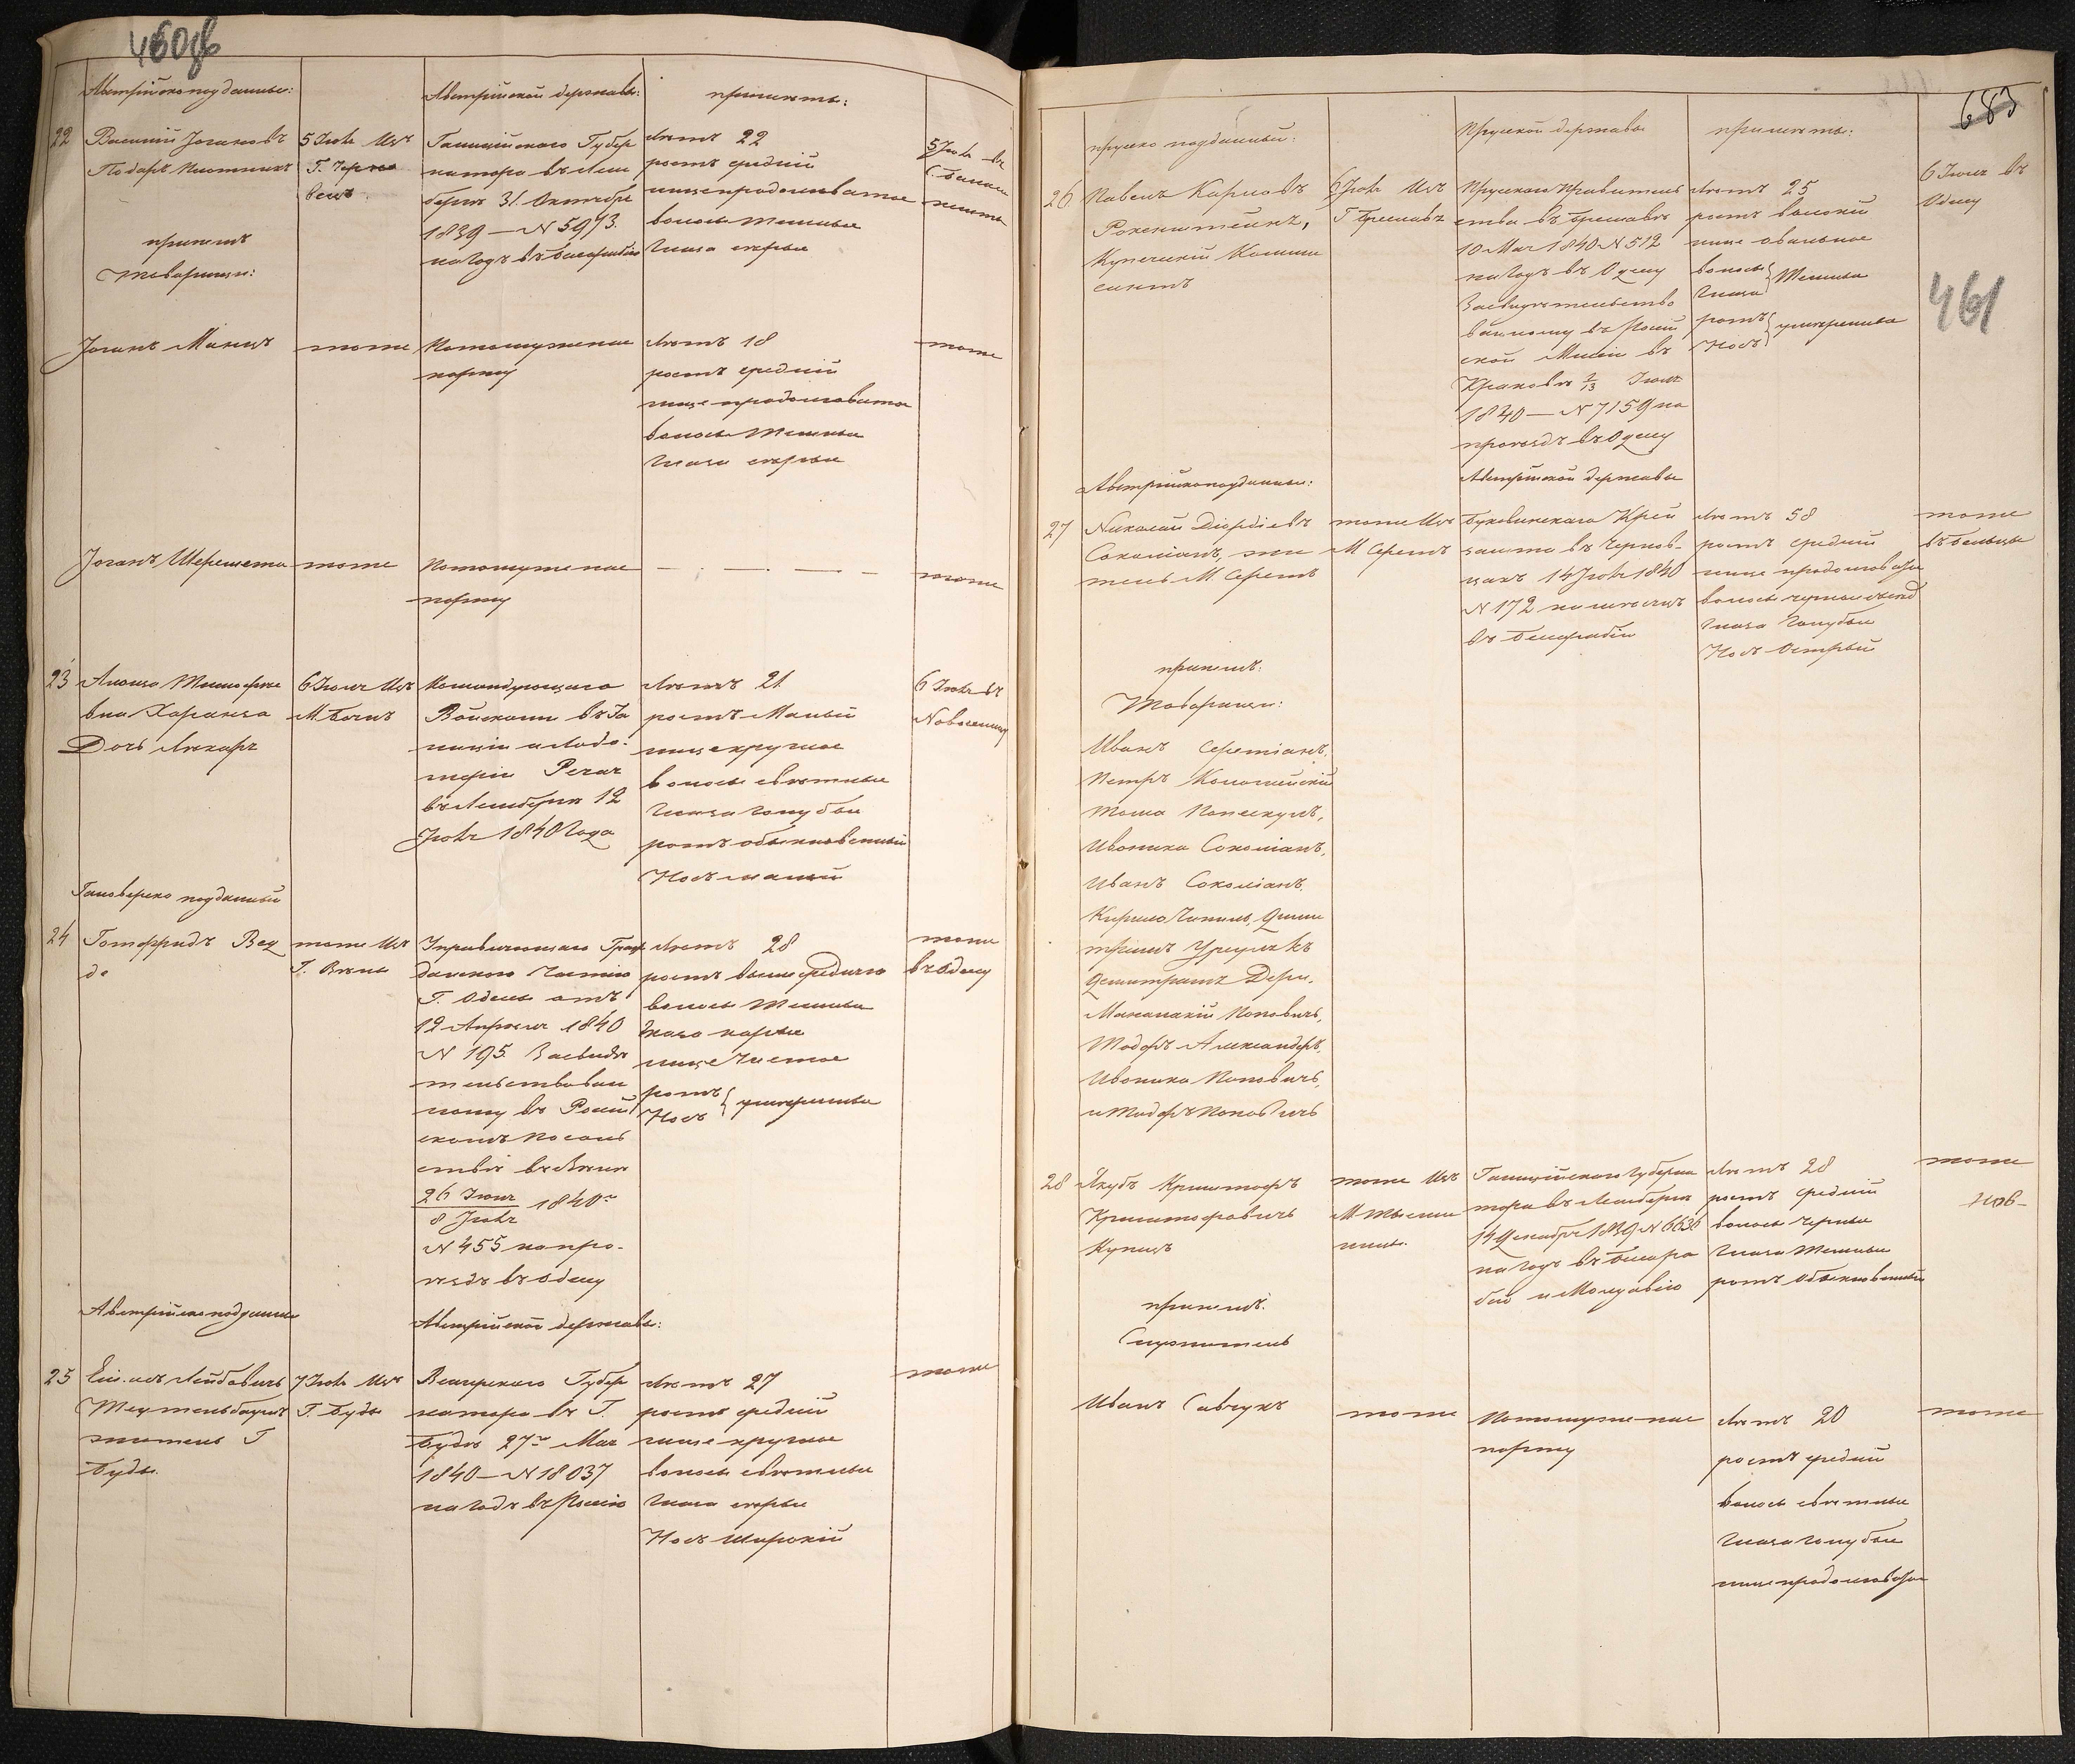 460об
Австрійскоподданные:
Австрійской державы:
приметы:
22
Василий Іогановъ
Подаръ Плотникъ
при немъ
товарищи:
5 Іюля Изъ
Г. Черно
вецъ
Галиційскаго Губер
натора въ Лем
берге 31 Октября
1839 — N 5973.
на годъ въ Бесарабію
Летъ 22
ростъ средній
лице продолговатое
волосы темные
глаза серые
5 Іюля въ
Іоганъ Манцъ
тоже
По тому же па
спорту
Летъ 18
ростъ средній
лице продолговатое
волосы темные
глаза серые
тоже
Іоганъ Шерешета
тоже
По тому же па
спорту
— . — . — . —
тоже
23
Доч Лекаря
6 Іюля Изъ
Командующаго
Войсками въ Га
лиціи и Лодо-
меріи
въ Лемберге 12
Іюля 1840 Года
Летъ 21
ростъ Малый
лице круглое
волосы светлые
глаза голубые
ротъ обыкновенный
Носъ малый
6 Іюля въ
Новоселицу
Гановерско подданный
24
Готфридъ Вед
де
тоже Изъ
Г. Вены
Управляющаго Граж
данскою Частію
Г. Одессы отъ
12 Апреля 1840
N 195. Засвиде
тельствован
ному въ Россій
скомъ Посоль
стве въ Вене
26 Іюня
8 Іюля 1840го
N 455 на про-
ездъ въ Одессу
Летъ 28
ростъ выше средняго
волосы темные
глаза карые
лице чистое
ротъ
Носъ } умеренные
тоже
въ Одессу
Австрійскоподданные
Австрійской державы:
25
Лейбовичъ
житель Г
Буды.
7 Іюля Изъ
Г. Буды
Венгерскаго Губер
натора въ Г.
Буде 27го Мая
1840 — N 18037
на годъ въ Россію
Летъ 27
ростъ средній
лице круглое
волосы светлые
глаза серые
Носъ широкій
тоже
683
461
прусско подданный:
Прусской державы
приметы:
26
Павелъ Карловъ
Рокенштейнъ,
Купеческій Комми
сантъ
6 Іюля Изъ
Г Бреславъ
Прусскаго Правитель
ства въ Бреславе
10 Мая 1840 N 512
на годъ въ Одессу
Засвидетельство
ванному въ Россій
ской Миссіи въ
Кракове 1/13 Іюля
1840 — N 7159 на
проездъ въ Одессу
Летъ 25
ростъ высокій
лице овальное
волосы
глаза } Темные
ротъ
Носъ } умеренные
6 Іюля въ
Одессу
Австрійскоподданные:
Австрійской державы
27
Николай Діордіевъ
Соколіанъ, жи
тель М Серетъ
тоже Изъ
М Серетъ
Буковинскаго Крей
замта въ Чернов-
цахъ 14 Іюля 1840
N 172 на месяцъ
въ Бесарабію
Летъ 58
ростъ средній
лице продолговатое
глаза голубые
Носъ Острый
тоже
въ Бельцы
при немъ:
Товарищи:
Иванъ Серетіанъ,
Петръ Коломийскій
Тома Попескулъ,
Ивоника Соколіанъ,
Иванъ Соколіанъ,
Кирило Чапилъ, Дими
трашъ Урсулякъ
Демитрашъ Дери,
Манолакій Поповичъ,
Тодоръ Александръ,
Ивоника Поповичъ,
и Тодоръ Поповичъ
28
Якубъ Криштофъ
Криштофовичъ
Купецъ
тоже Изъ
М Тысме
ницы.
Галиційскаго Губерна
тора въ Лемберге
14 Декабря 1839 N 6636
на годъ въ Бесара
бію и Молдавію
Летъ 28
ростъ средній
волосы черные
глаза темные
ротъ Обыкновенный
тоже
при немъ.
Служитель
Иванъ Савчукъ
тоже
По тому же па
спорту
Летъ 20
ростъ средній
волосы светлые
глаза голубые
лице продолговатое
тоже